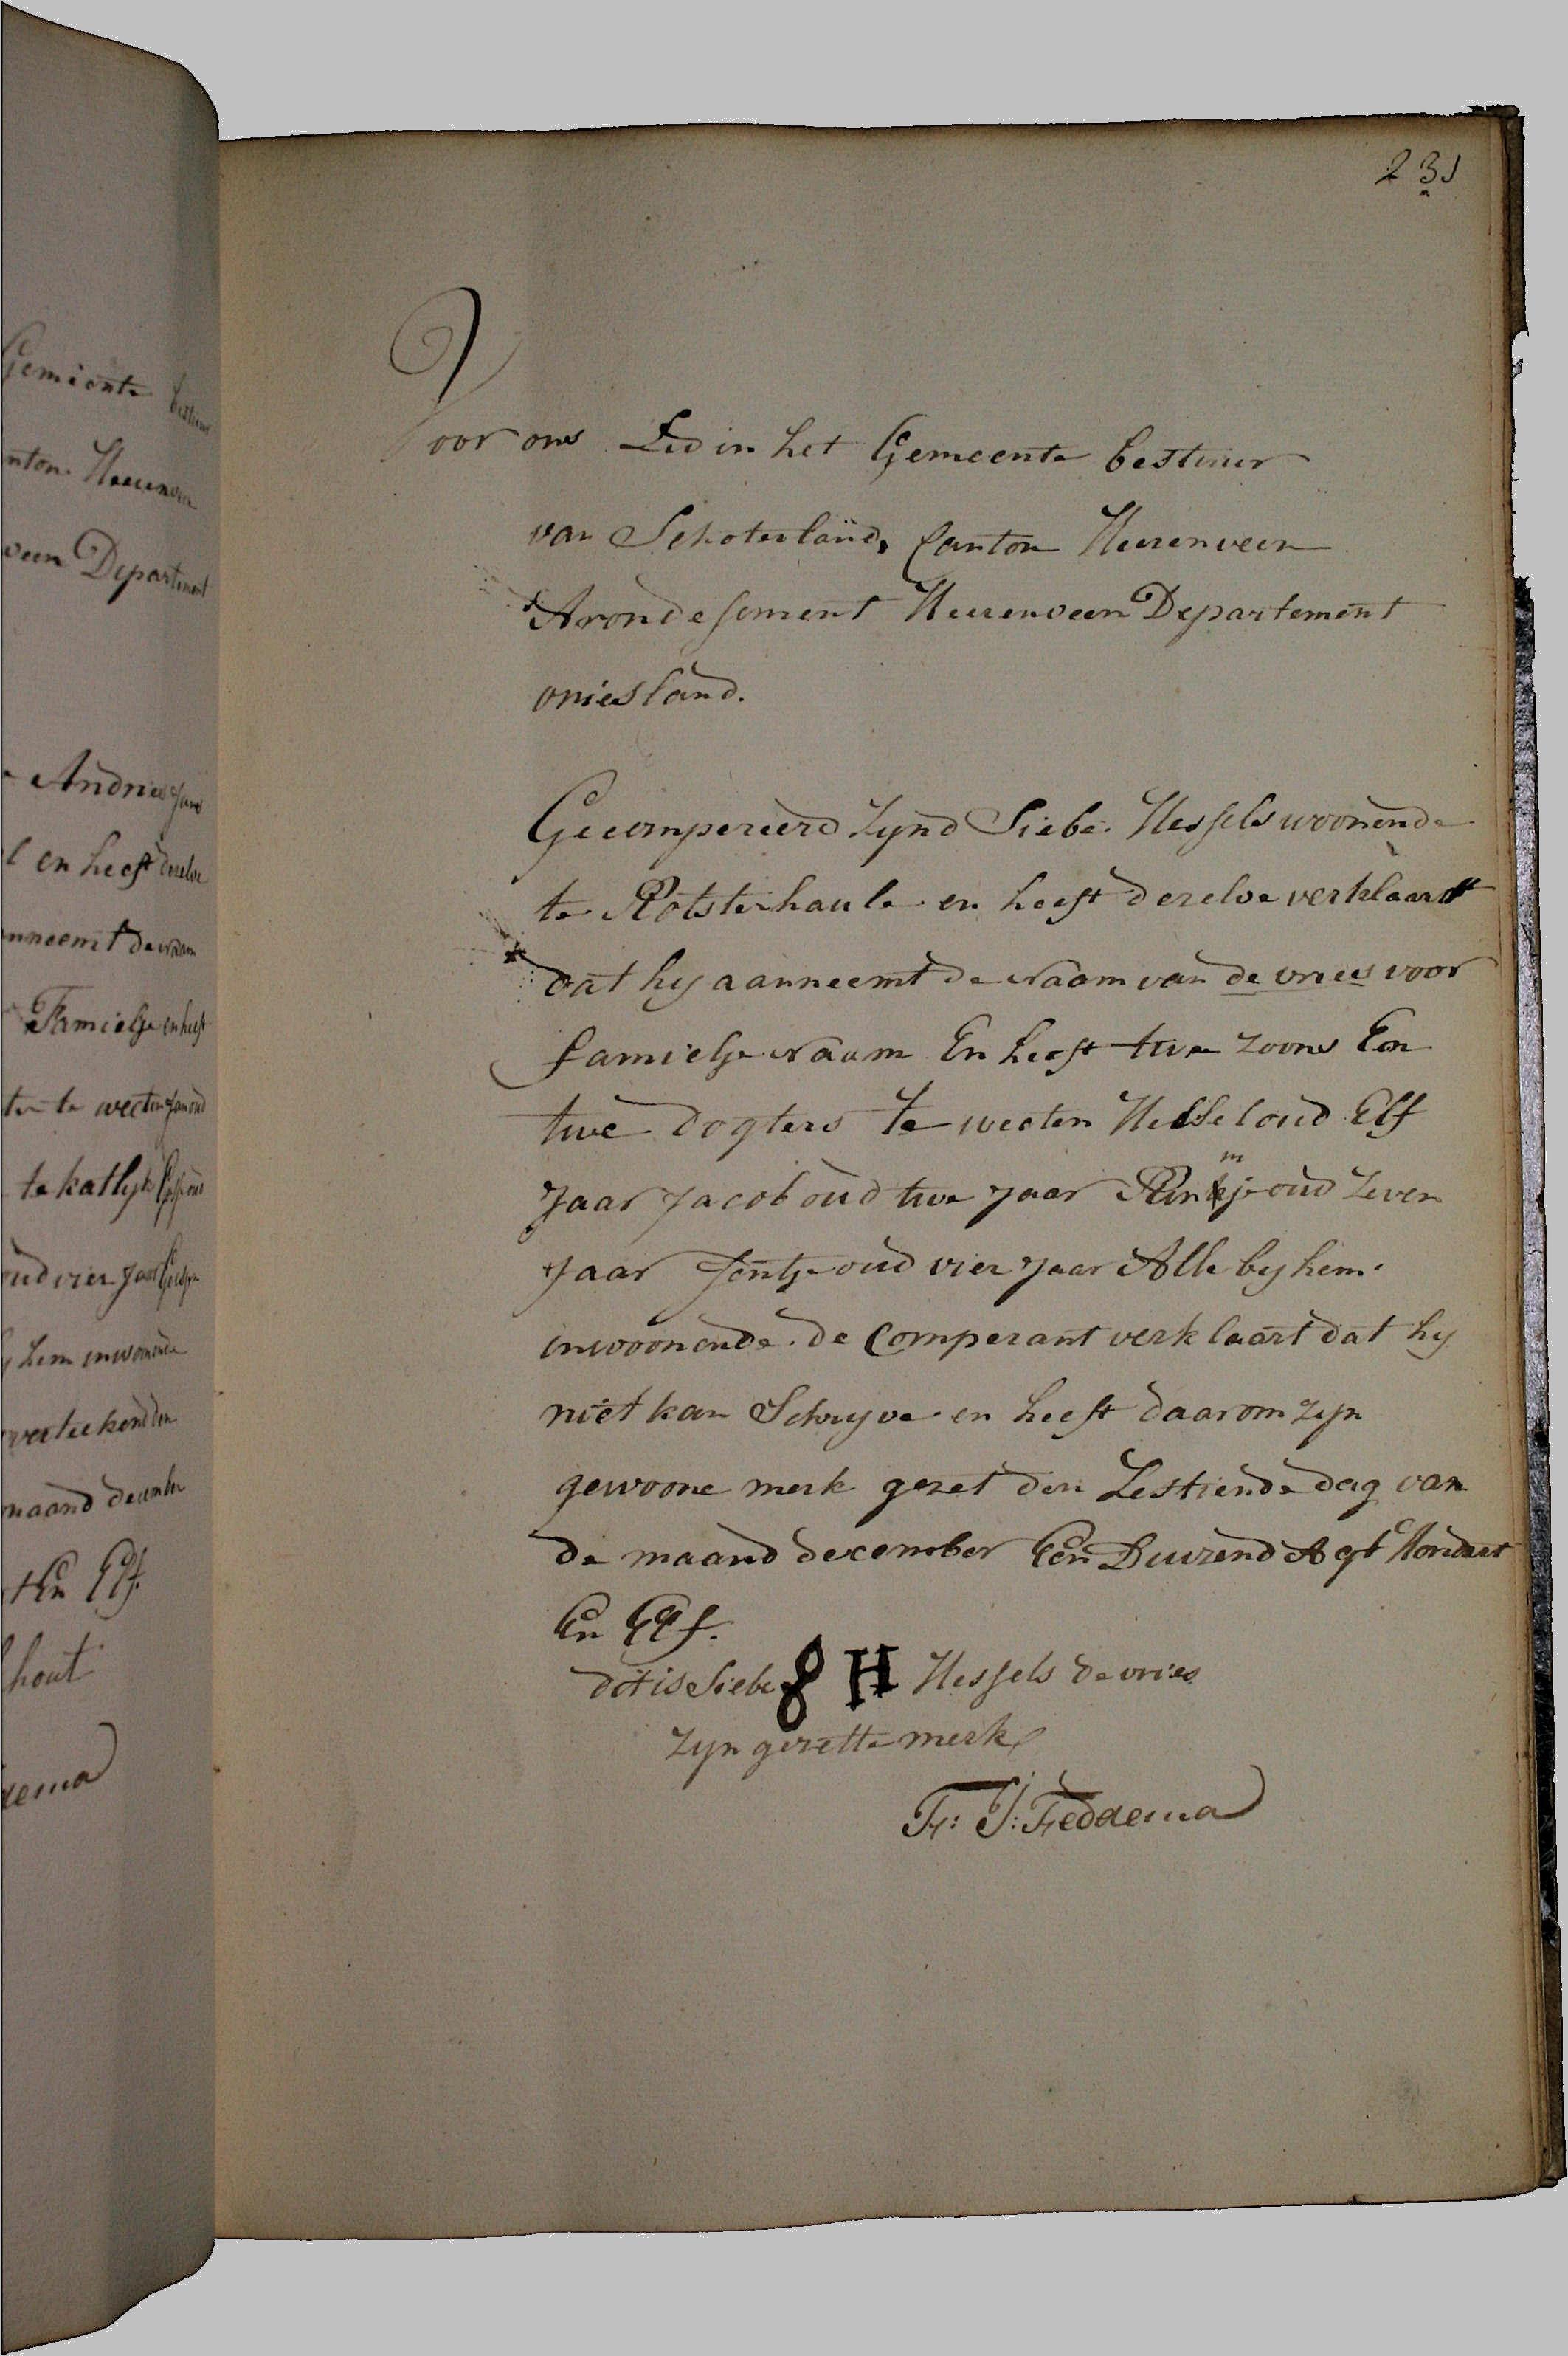 Gemeente
nton Heeren
veen Departement
Andries Jans
en heeft dezelve
nneemt de naam
Famielje en heeft
ten te weeten Jan oud
te katlyk
oud vier Jaar
hem inwonende
verteekend den
maand december
t En Elf.
hout
dema
231
Voor ons Lid in het Gemeente bestuur
van Schoterland, Canton Heerenveen
Arondesement Heerenveen Departement
vriesland.
Gecompereerd zynd Siebe Hessels woonende
te Rotsterhaule en heeft dezelve verklaardt
dat hy aanneemt de Naam van de vries voor
famielje Naam En heeft twe zoons En
twe dogters te weeten Hessel oud Elf
Jaar Jacob oud twe Jaar Rimkje oud zeven
Jaar Jentje oud vier Jaar Alle by hem
inwoonende. de Comperant verklaart dat hy
niet kan Schryve en heeft daarom zyn
gewoone merk gezet den Zestiende dag van
de maand december Een Duizend Agt Hondert
En Elf.
dit is Siebe 8 H Hessels de vries
zyn gezette merk
Fr: J: Feddema